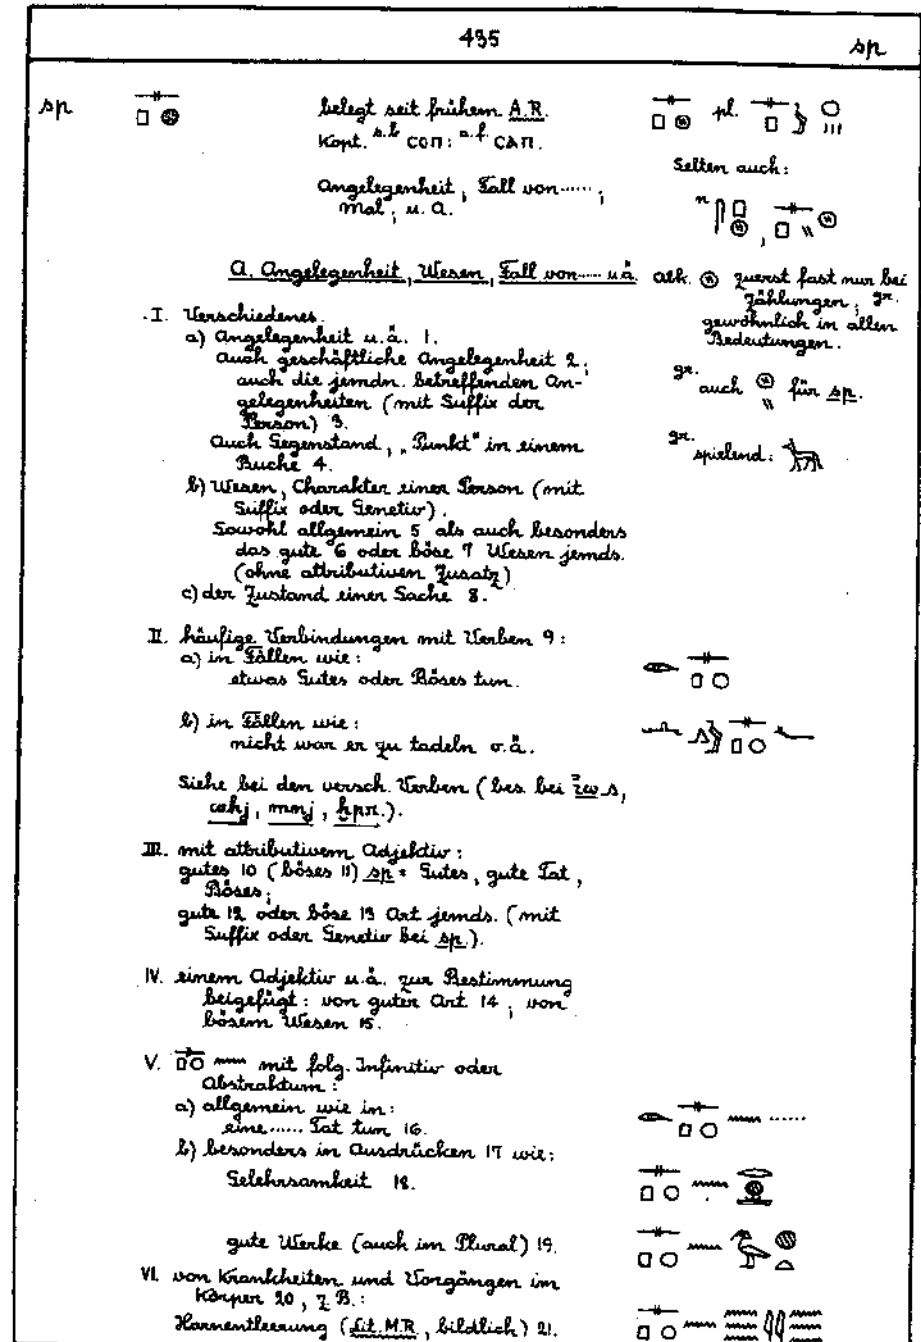 435 sp
sp belegt seit frühem A.R. pl.
Kopt. s.b ⲥⲟⲡ: a.f. ⲥⲁⲡ.
Selten auch:
Angelegenheit, Fall von......;
Mal, u. a.
n ,
A. Angelegenheit, Wesen, Fall von...... u.ä. Alk. ⊗ zuerst fast nur bei
Zählungen, gr.
gewöhnlich in allen
Bedeutungen.
I. Verschiedenes.
a) Angelegenheit u.ä. 1.
auch geschäftliche Angelegenheit 2;
auch die jemdn. betreffenden An-
gelegenheiten (mit Suffix der
Person) 3.
Auch Gegenstand, „Punkt" in einem
Buche 4.
gr. auch für sp.
gr. spielend:
b) Wesen, Charakter einer Person (mit
Suffix oder Genetiv).
Sowohl allgemein 5 als auch besonders
das gute 6 oder böse 7 Wesen jemds.
(ohne attributiven Zusatz)
c) der Zustand einer Sache 8.
II. häufige Verbindungen mit Verben 9:
a) in Fällen wie:
etwas Gutes oder Böses tun.
b) in Fällen wie:
nicht war er zu tadeln o.ä.
Siehe bei den versch. Verben (bes. bei
mnj, ḫpr.).
III. mit attributivem Adjektiv:
gutes 10 (böses 11) sp = Gutes, gute Tat,
Böses;
gute 12 oder böse 13 Art jemds. (mit
Suffix oder Genetiv bei sp.).
IV. einem Adjektiv u.ä. zur Bestimmung
beigefügt: von guter Art 14, von
bösem Wesen 15.
V. mit folg. Infinitiv oder
Abstraktum:
a) allgemein wie in:
eine...... Tat tun 16. ......
b) besonders in Ausdrücken 17 wie:
Gelehrsamkeit 18.
gute Werke (auch im Plural) 19.
VI. von Krankheiten und Vorgängen im
Körper 20, z.B.:
Harnentleerung (Lit. M.R., bildlich) 21.